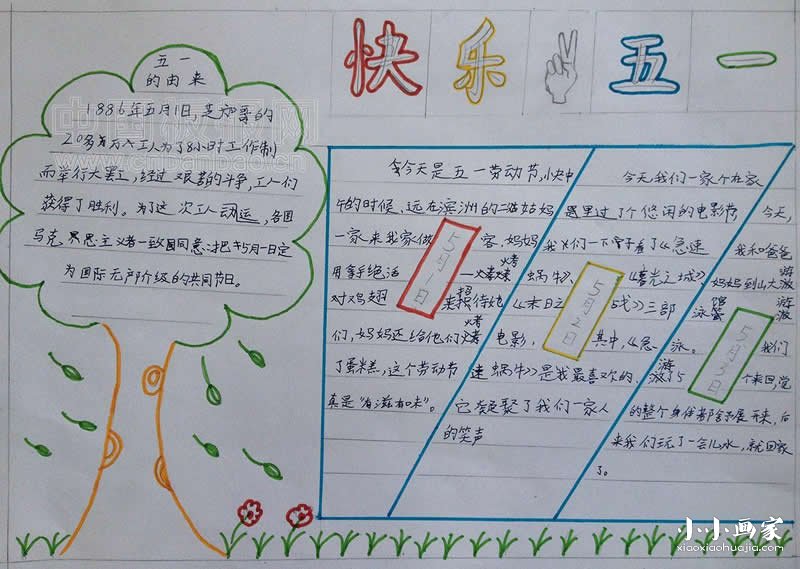 快乐五一
五一
的由来
1886年五月1日,芝加哥的
20多万工人为了8小时工作制
而举行大罢工,经过艰苦的斗争,工人们
获得了胜利。为了这次工人运动,各国
马克思主义者一致同意把5月1日定
为国际无产阶级的共同节日。
今天是五一劳动节,中
午的时候,远在滨洲的二姑姑妈
一家来我家做客,妈妈
用拿手绝活
对鸡翅来招待他
们,妈妈还给他们烤
了蛋糕,这个劳动节
真是“有滋有味”。
5月1日
今天,我们一家个在家
里过了个悠闲的电影节
我们一下看了《急速
蜗牛》、《曙光之城》
《末日之战》三部
电影,其中,《急
速蜗牛》是我最喜欢的,
它凝聚了我们一家人
的笑声
5月2日
今天,
我和爸爸
妈妈到山大游
泳馆游
泳。我们
游了5个来回,觉
的整个身体都舒展开来,后
来我们玩了一会儿水,就回家
了。
5月3日
中国板报网
小小画家
xiaoxiaohuajia.com